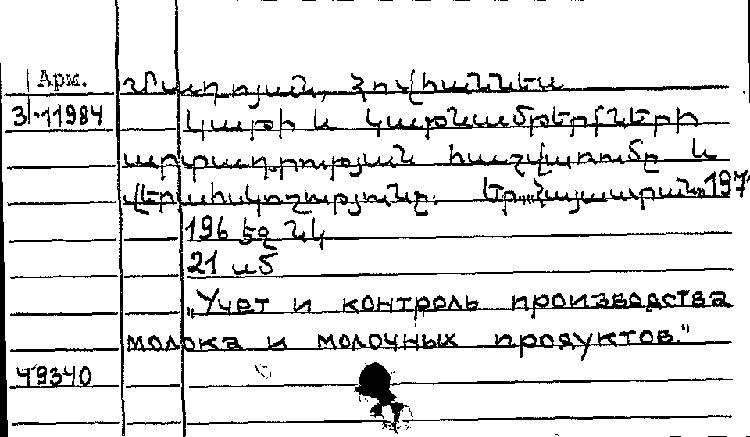 Арм.
Հովհաննես
3-11984 Կաթի և կաթնամթերքների
արտադրության հաշվառումը և
վերահսկողությունը. Եր., „Հայաստան“, 197
196 էջ նկ
21 սմ
„Учет и контроль производства
молока и молочных продуктов."
49340